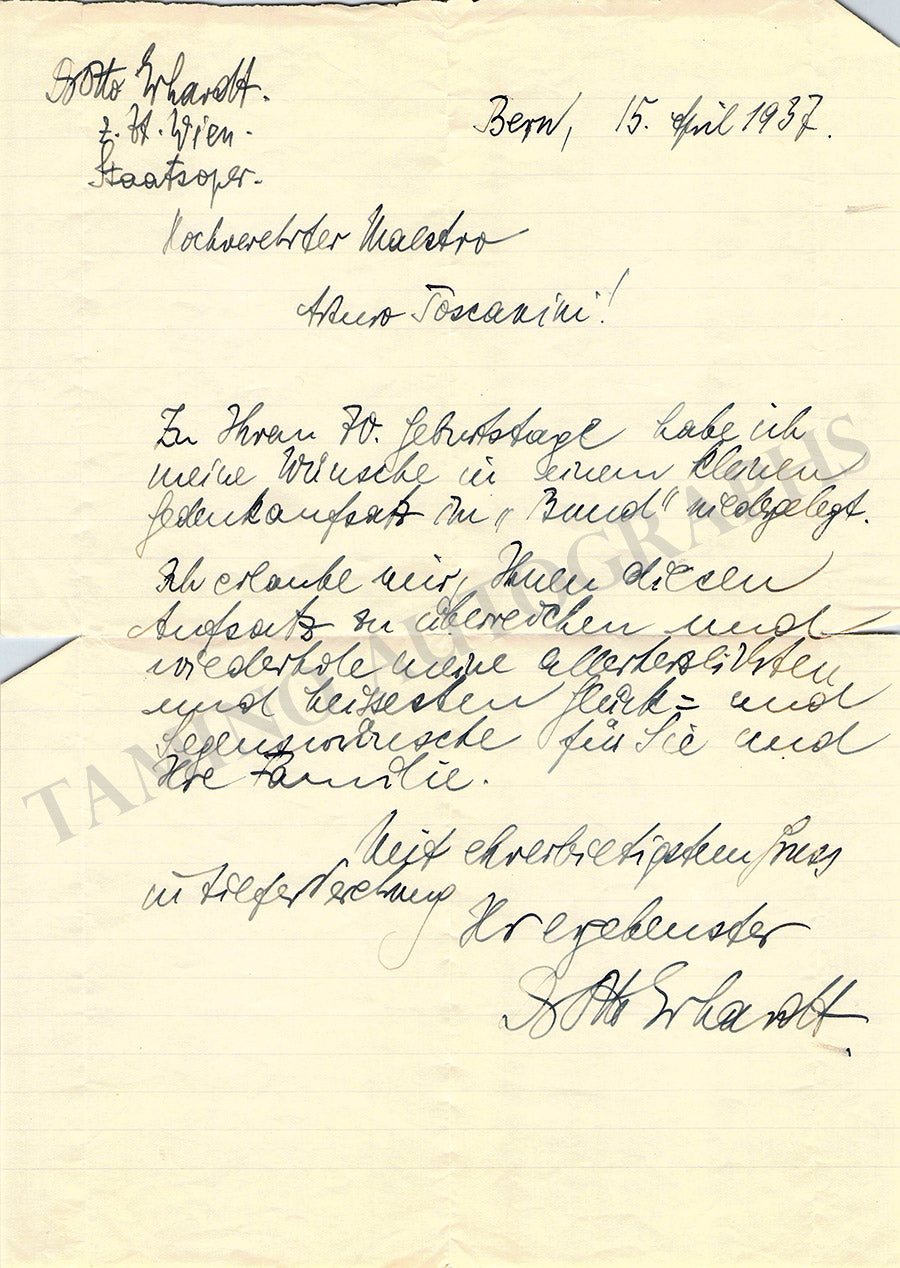 Dr Otto Erhardt.
z. Zt. Wien.
Staatsoper.
Bern, 15. April 1937.
Hochverehrter Maestro
Arturo Toscanini!
Zu Ihrem 70. Geburtstage habe ich
meine Wünsche in einem kleinen
Gedenkaufsatz im „Bund" niedergelegt.
Ich erlaube mir, Ihnen diesen
Aufsatz zu überreichen und
wiederhole meine allerherzlichsten
und heissesten Glück= und
Segenswünsche für Sie und
Ihre Familie.
Mit ehrerbietigstem Gruss
in tiefer Verehrung
Ihr ergebenster
Dr Otto Erhardt
TAMINO AUTOGRAPHS